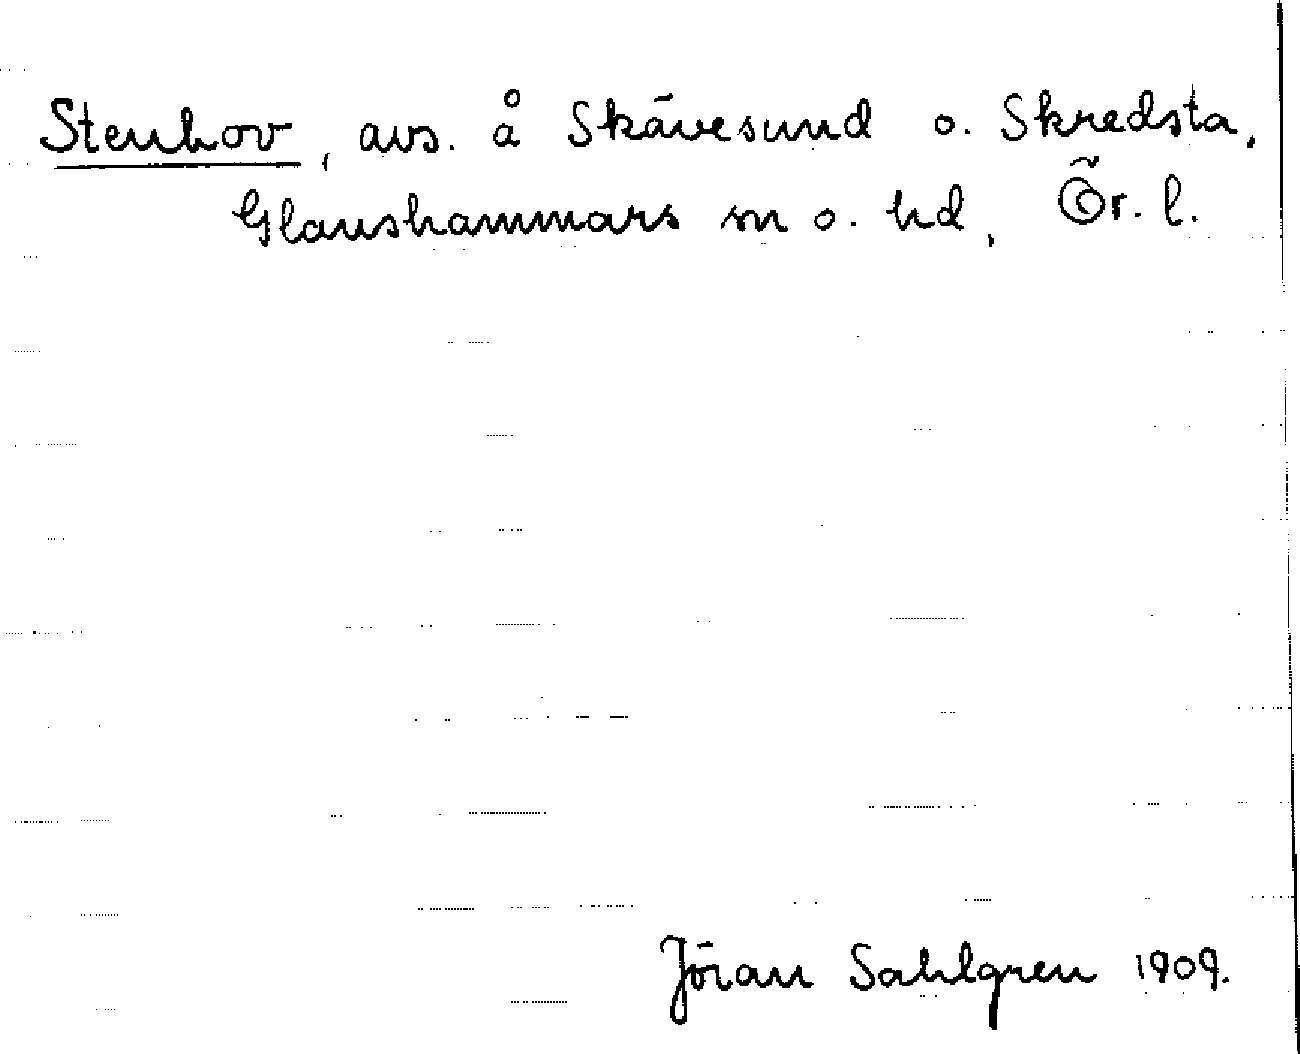 Stenhov, avs. å Skävesund o. Skredsta,
Glanshammars sn o. hd, Ör. l.
Jöran Sahlgren 1909.